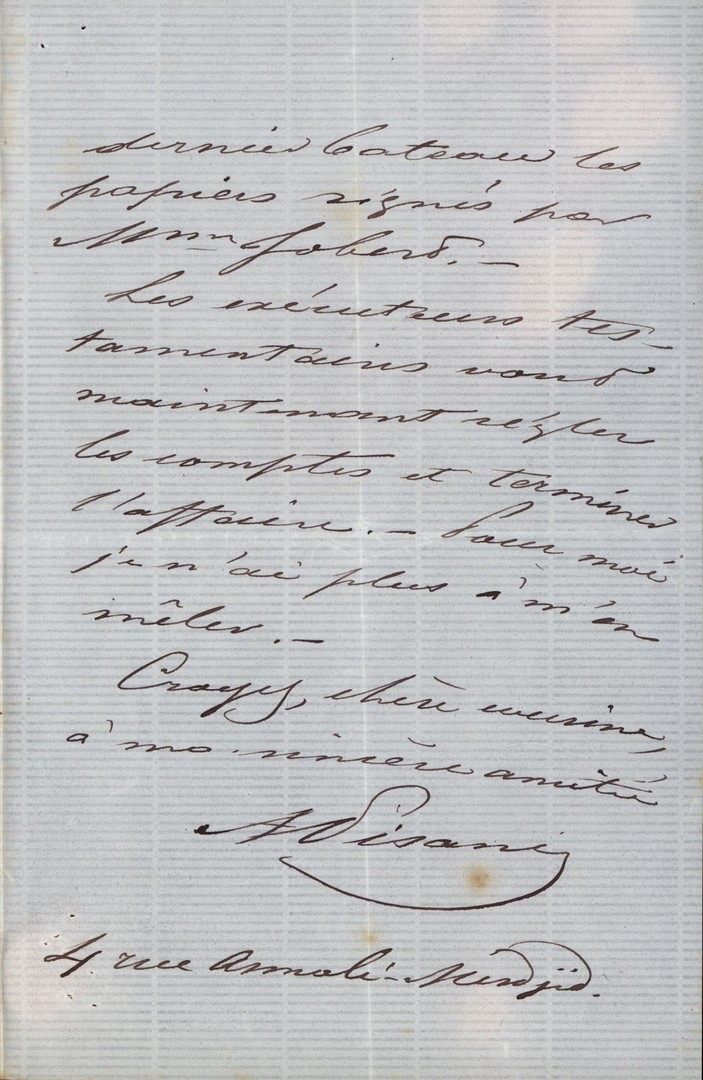 dernier bateau les
papiers signés par
Mme Jobert. —
Les exécuteurs tes-
tamentaires vont
maintenant régler
les comptes et terminer
l'affaire. — Pour moi
je n'ai plus à m'en
mêler. —
Croyez, chère cousine,
à ma sincère amitié
A Pisani
4 rue Asmali-Mesdjid.